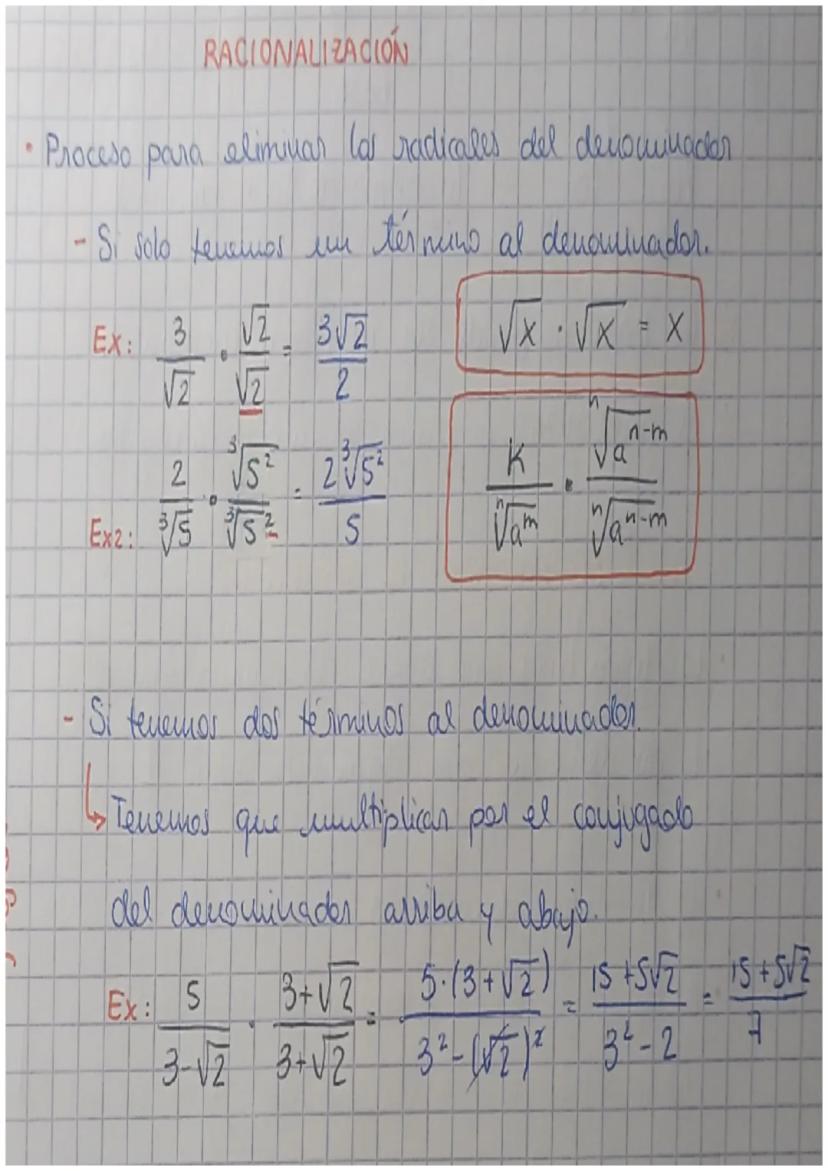 RACIONALIZACIÓN
• Proceso para eliminar los radicales del denominador
- Si solo tenemos un término al denominador.
Ex: 3/√2 · √2/√2 = 3√2/2
√x · √x = x
Ex2: 2/∛5 · ∛5²/∛5² = 2∛5²/5
K/ⁿ√aᵐ · ⁿ√aⁿ⁻ᵐ/ⁿ√aⁿ⁻ᵐ
- Si tenemos dos términos al denominador.
↳ Tenemos que multiplicar por el conjugado
del denominador arriba y abajo.
Ex: 5/(3-√2) · (3+√2)/(3+√2) = 5·(3+√2)/(3²-(√2)²) = (15+5√2)/(3²-2) = (15+5√2)/7